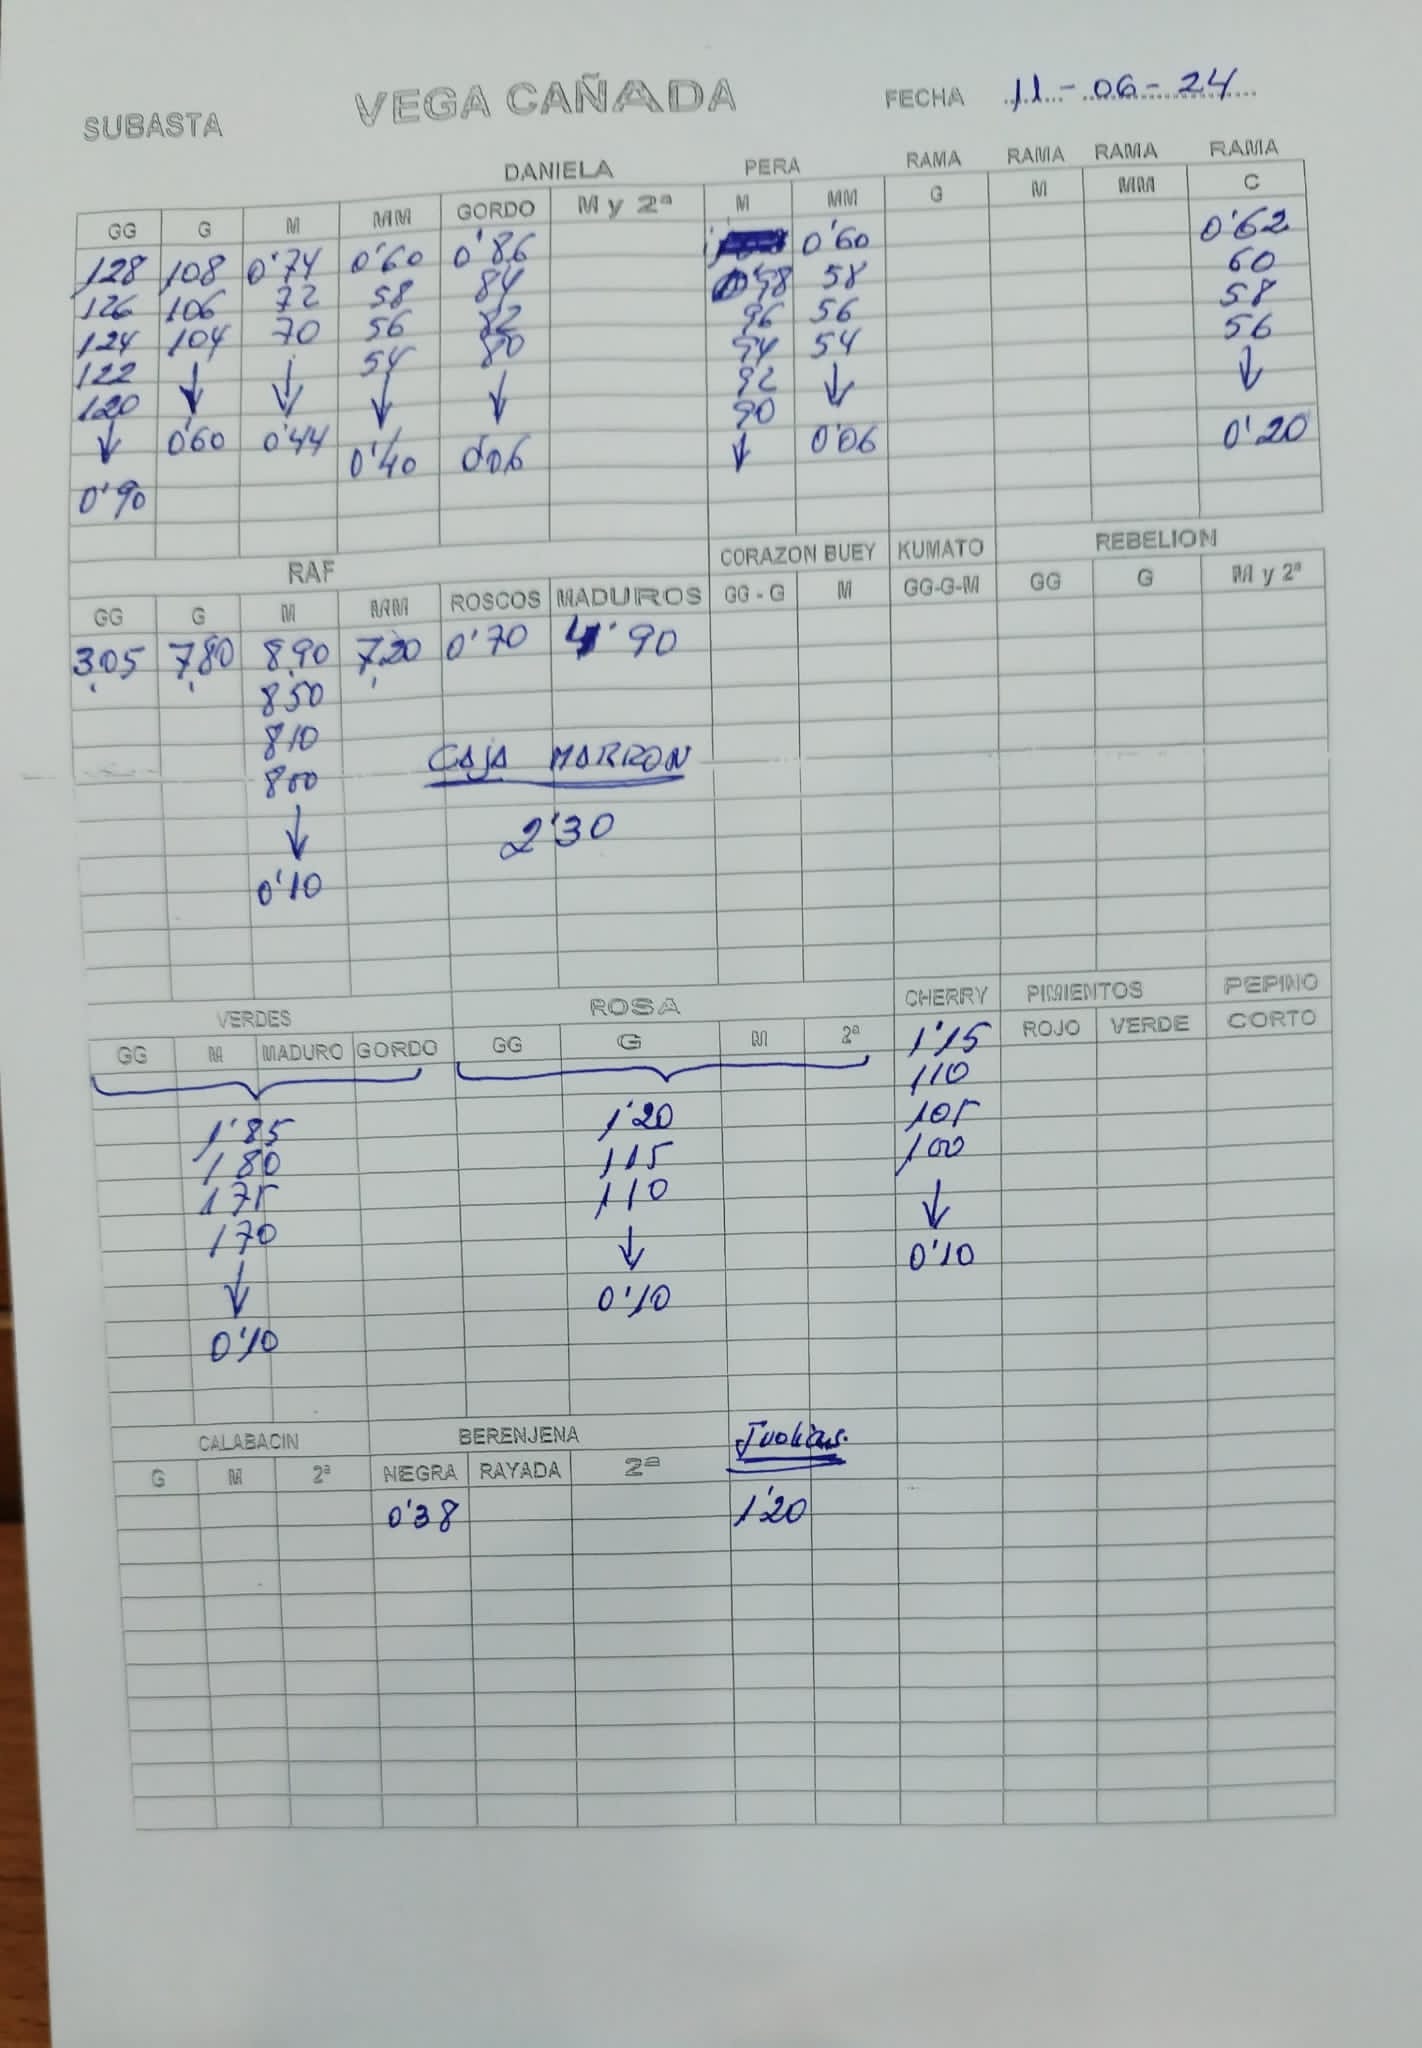 SUBASTA VEGA CAÑADA FECHA 11-06-24
DANIELA PERA RAMA RAMA RAMA RAMA
GG G M MM GORDO M y 2ª M MM G M MM C
128 108 0'74 0'60 0'86 0'60 0'62
126 106 72 58 84 98 58 60
124 104 70 56 82 96 56 58
122 ↓ ↓ 54 80 94 54 56
120 0'60 0'44 ↓ ↓ 92 ↓ ↓
↓ 0'40 0'06 90 0'06 0'20
0'90 ↓
RAF CORAZON BUEY KUMATO REBELION
GG G M MM ROSCOS MADUROS GG - G M GG-G-M GG G M y 2ª
3,05 7,80 8,90 7,20 0'70 4'90
850
810
800
CAJA MARRON
↓
2'30
0'10
VERDES ROSA CHERRY PIMIENTOS PEPINO
GG M MADURO GORDO GG G M 2ª ROJO VERDE CORTO
1'15
110
1'85 1'20 105
180 115 100
175 110 ↓
170 ↓ 0'10
↓ 0'10
0'10
CALABACIN BERENJENA Judias.
G M 2ª NEGRA RAYADA 2ª
0'38 1'20